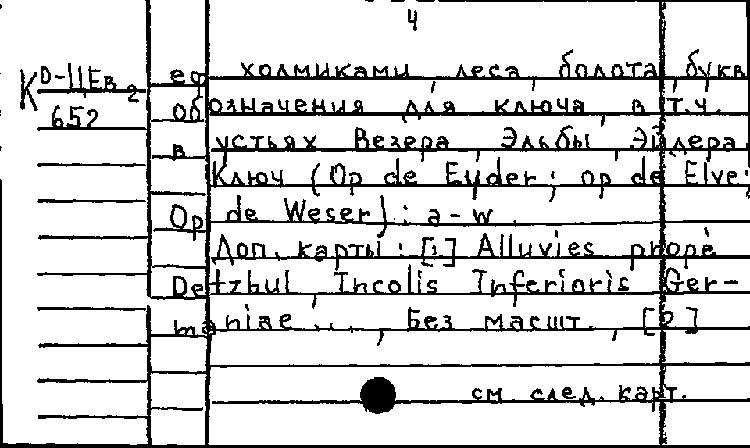 4
К D-ЦЕв 2
652
еф холмиками, леса, болота, букв
обозначения для ключа, в т.ч.
в устьях Везера, Эльбы, Эйдера.
Ключ (Op de Eyder; op de Elve;
Op de Weser): a-w.
Доп. карты: [1] Alluvies prope
Detzbul, Incolis Inferioris Ger-
maniae ..., Без масшт., [2]
см. след. карт.